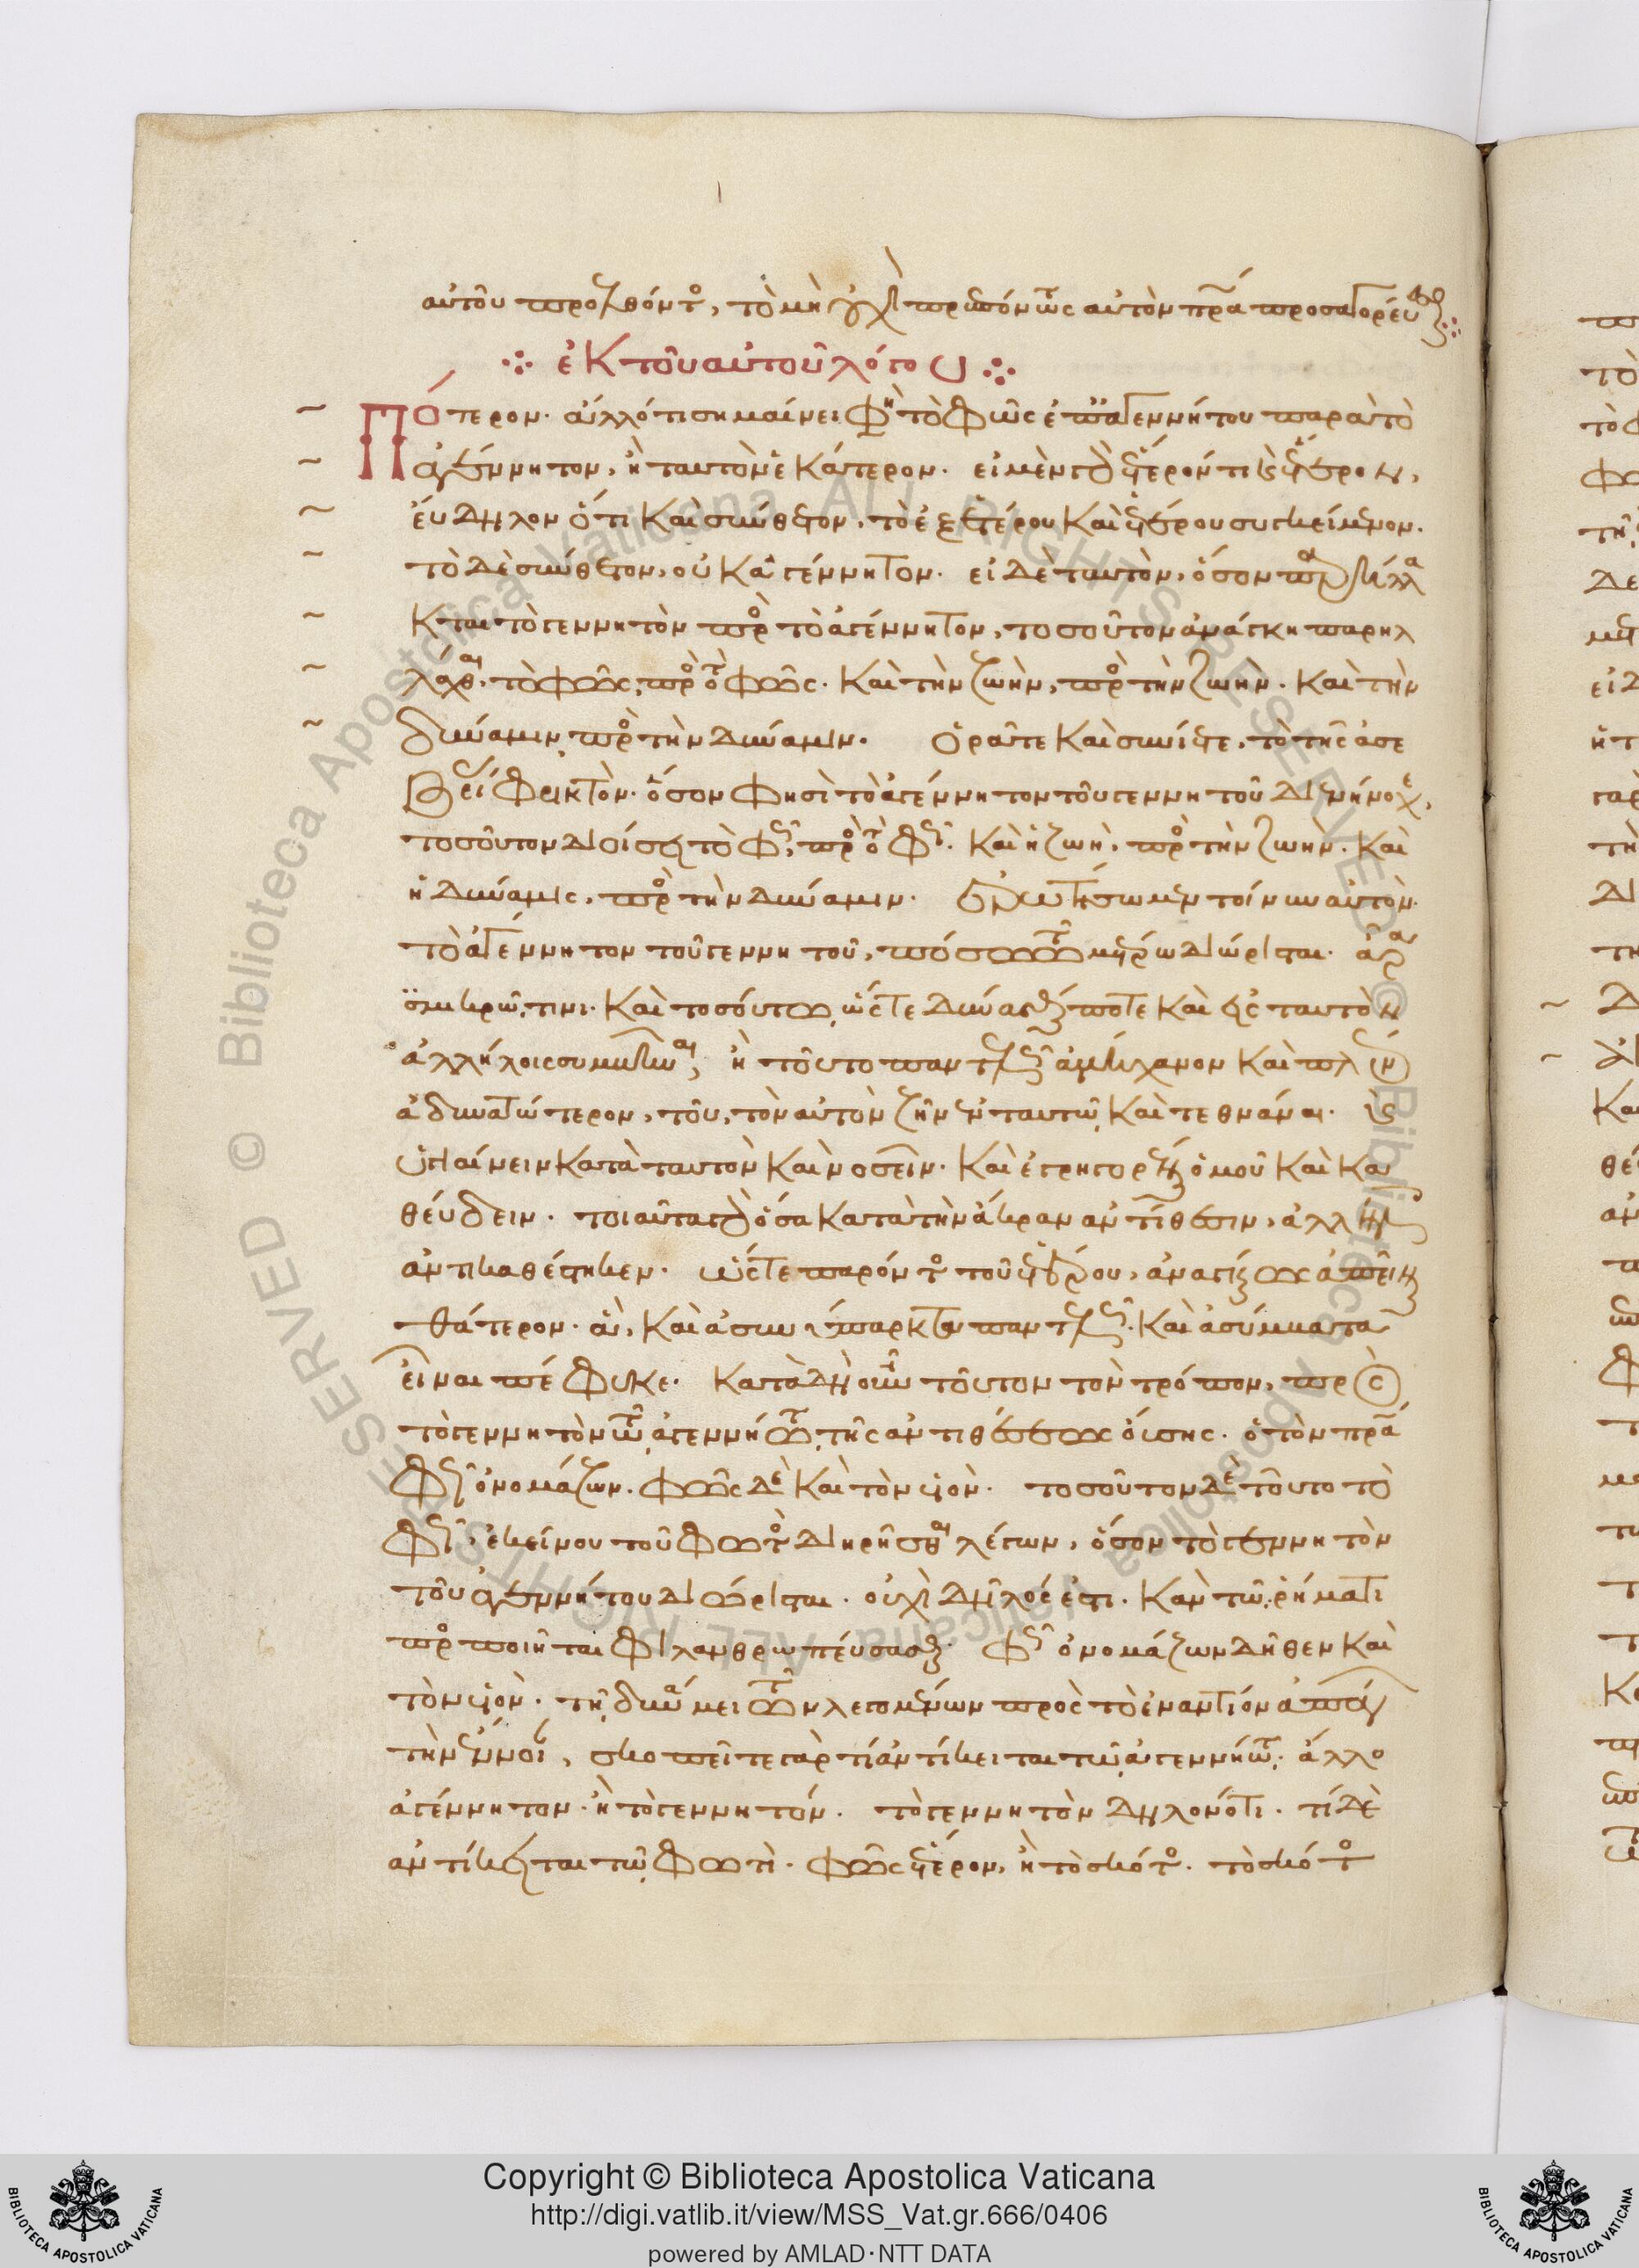 αὐτοῦ προελθόντος, τὸ μὴ οὐχὶ πρεπόντως αὐτὸν πρα προσαγορεύεσθαι
ἐκ τοῦ αὐτοῦ λόγου
Πότερον ἄλλό τι σημαίνει φὴς τὸ φῶς ἐπὶ ἀγεννήτου παρὰ τὸ
ἀγέννητον, ἢ ταυτὸν ἑκάτερον. εἰ μὲν γὰρ ἕτερόν τι καὶ ἕτερον,
εὔδηλον ὅτι καὶ σύνθετον, τὸ ἐξ ἑτέρου καὶ ἑτέρου συγκείμενον.
τὸ δὲ σύνθετον, οὐκ ἀγέννητον. εἰ δὲ ταυτὸν, ὅσον παρήλλα
κται τὸ γεννητὸν πρὸς τὸ ἀγέννητον, τοσοῦτον ἀνάγκη παρηλ
λάχθαι τὸ φῶς, πρὸς τὸ φῶς. καὶ τὴν ζωὴν, πρὸς τὴν ζωὴν. καὶ τὴν
δύναμιν, πρὸς τὴν δύναμιν. ὁρᾶτε καὶ σύνετε, τὸ τῆς ἀσε
βείας φρικτὸν. ὅσον φησὶ τὸ ἀγέννητον τοῦ γεννητοῦ διενήνοχε,
τοσοῦτον διοίσει τὸ φῶς, πρὸς τὸ φῶς. καὶ ἡ ζωὴ, πρὸς τὴν ζωὴν. καὶ
ἡ δύναμις, πρὸς τὴν δύναμιν. ἐρωτήσωμεν τοίνυν αὐτὸν
τὸ ἀγέννητον τοῦ γεννητοῦ, πόσω τῶ μέτρω διώρισται. ἆρα
σμικρῶ τινι. καὶ τοσούτω, ὥστε δύνασθαί ποτε καὶ εἰς ταυτὸν
ἀλλήλοις συμβῆναι, ἢ τοῦτο παντελῶς ἀμήχανον καὶ πλέον
ἀδυνατώτερον, τοῦ, τὸν αὐτὸν ζῆν ἐν ταυτῶ καὶ τεθνάναι. καὶ
ὑγιαίνειν κατὰ ταυτὸν καὶ νοσεῖν. καὶ ἐγρηγορέναι ὁμοῦ καὶ κα
θεύδειν. τοιαῦτα γὰρ ὅσα κατὰ τὴν ἄκραν ἀντίθεσιν, ἀλλήλοις
ἀντικαθέστηκεν. ὥστε παρόντος τοῦ ἑτέρου, ἀναγκαίως ἀπεῖναι
θάτερον. ἃ, καὶ ἀσυνύπαρκτα παντελῶς. καὶ ἀσύμβατα
εἶναι πέφυκε. κατὰ δὴ οὖν τοῦτον τὸν τρόπον, πρὸς
τὸ γεννητὸν τῶ ἀγεννήτω τῆς ἀντιθέσεως οὔσης. ὁ τὸν πρα
φῶς ὀνομάζων. φῶς δὲ καὶ τὸν υἱὸν. τοσοῦτον δὲ τοῦτο τὸ
φῶς, ἐκείνου τοῦ φωτὸς διηρῆσθαι λέγων, ὅσον τὸ γεννητὸν
τοῦ ἀγεννήτου διώρισται. οὐχὶ δῆλός ἐστι. κἂν τῶ ῥήματι
προσποιῆται φιλανθρωπεύσασθαι φῶς ὀνομάζων δῆθεν καὶ
τὸν υἱὸν. τῇ δυνάμει τῶν λεγομένων πρὸς τὸ ἐναντίον ἀπάγει
τὴν ἔννοιαν, σκοπεῖτε γὰρ τί ἀντίκειται τῶ ἀγεννήτω. ἄλλο
ἀγέννητον. ἢ τὸ γεννητόν. τὸ γεννητὸν δηλονότι. τί δὲ
ἀντίκειται τῶ φωτὶ. φῶς ἕτερον, ἢ τὸ σκότος. τὸ σκότος
Copyright © Biblioteca Apostolica Vaticana
http://digi.vatlib.it/view/MSS_Vat.gr.666/0406
powered by AMLAD·NTT DATA
BIBLIOTECA APOSTOLICA VATICANA
BIBLIOTECA APOSTOLICA VATICANA